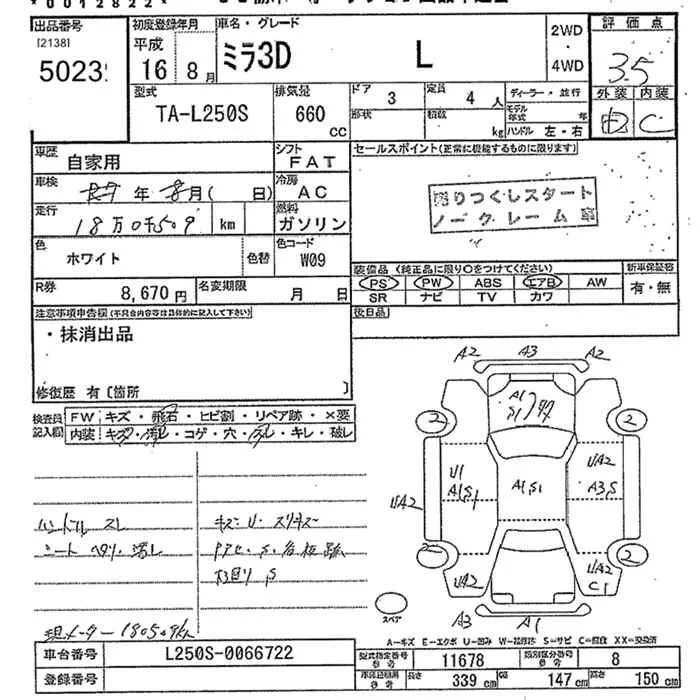 *0012822*
出品番号
[2138]
5023
初度登録年月
平成
16年 8月
車名・グレード
ミラ3D L
2WD
・
4WD
評価点
3.5
外装 内装
D C
型式
TA-L250S
排気量
660 cc
ドア
3
形状
定員
4 人
積載
kg
ディーラー・並行
モデル年式 年
ハンドル 左・右
車歴
自家用
シフト
FAT
セールスポイント(正常に機能するものに限ります)
売りつくしスタート
ノークレーム車
車検
年 8月( 日)
冷房
AC
走行
18万0千509 km
燃料
ガソリン
色
ホワイト
色替
色コード
W09
R券
8,670円
名変期限
月 日
装備品(純正品に限り○をつけてください)
PS PW ABS エアB AW
SR ナビ TV カワ
新車保証書
有・無
注意事項申告欄(不具合内容等は具体的に記入して下さい)
・抹消出品
修復歴 有〔箇所 〕
後日品
検査員記入欄
FW キズ・飛石・ヒビ割・リペア跡・×要
内装 キズ・汚れ・コゲ・穴・スレ・キレ・破レ
ハンドル スレ
シート ヘタリ・汚レ
キズ・U・スリキズ
下回り S
現メーター 180509km
A2 A3 A2
A1
S1
2 2
U1
A1,S1
A1,S1
UA2
A3,S
UA2
UA2
2 2
UA2
UA2
C1
スペア
A3 A1
A=キズ E=エクボ U=凹み W=補修跡 S=サビ C=腐食 XX=交換済
車台番号
L250S-0066722
登録番号
型式指定番号
参考
11678
類別区分番号
参考
8
車体寸法
参考
長さ 339 cm
幅 147 cm
高さ 150 cm